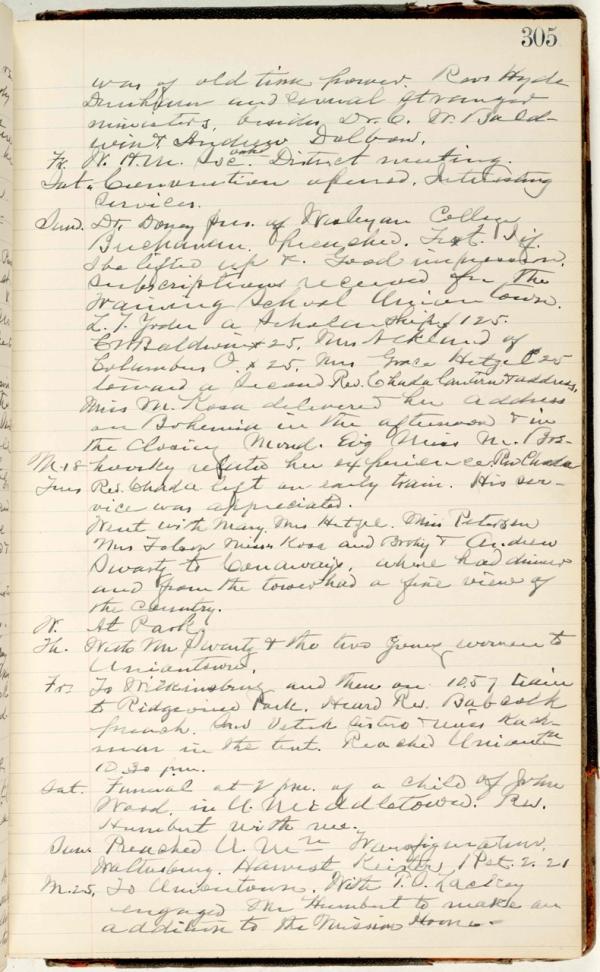 305
was of old time power. Revs Hyde
and several stranger
ministers, besides Dr. C. W. Bald-
win & Andrew Dolbow.
Fr. W. H. M. Soc. District meeting.
Sat. Convention opened. Interesting
services.
Sund. Dr. Doney pres. of Wesleyan College
Buchannon. Preached. Text. If
I be lifted up &. Good impression.
Subscriptions received for the
Training School Uniontown.
L. T. Yoder a Scholarship $125.
C W Baldwin $25, Mrs of
Columbus O. $25, Mrs Grace Hetzel $25
toward a second Rev. Chada address,
Miss M. Kosa delivered her address
on Bohemia in the afternoon & in
the closing Mond. Evg Miss M. Bro-
M. 18 hovsky related her experience. Rev Chada
Tues Rev. Chada left on early train. His ser-
vice was appreciated.
Went with Mary, Mrs Hetzel, Miss Peterson
Mrs Folsom Misses Kosa and Brohy & Andrew
Swartz to Conaways, where had dinner
and from the tower had a fine view of
the country.
W. At Park
Th. With Wm Swartz & the two young women to
Uniontown.
Fr. To Wilkinsburg and then on 10.57 train
to Ridgeview Park. Heard Rev. Babcock
preach. Saw sisters & Miss
in the tent. Reached Union
10.30 p.m.
Sat. Funeral at 2 p.m. of a child of John
Wood, in U. Middletown. Rev.
Humbert with me.
Sun. Preached U. M. Transfiguration,
Waltersburg. Harvest 1 Pet. 2. 21
M. 25, To Uniontown. With T. O. Lackey
engaged Humbert to make an
addition to the Mission Home.